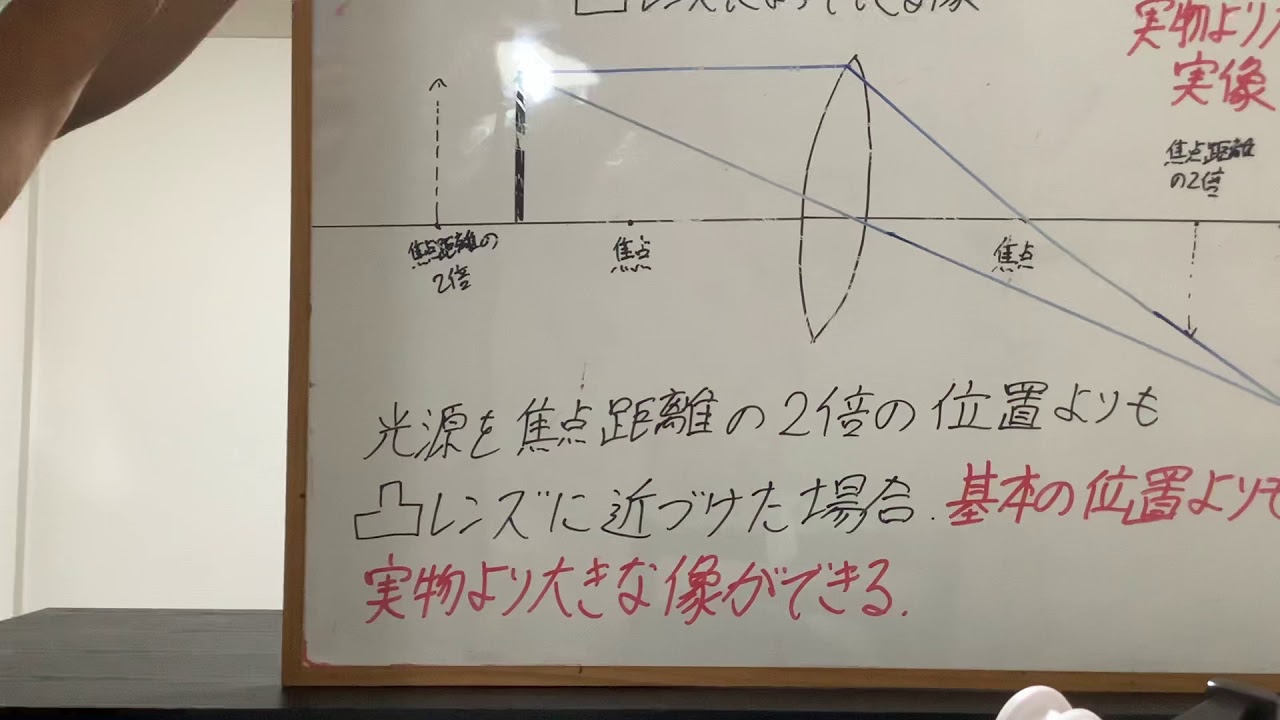 凸レンズによってできる像
実物より
実像
焦点距離
の2倍
焦点距離の
2倍
焦点
焦点
光源を焦点距離の2倍の位置よりも
凸レンズに近づけた場合.基本の位置よりも
実物より大きな像ができる.